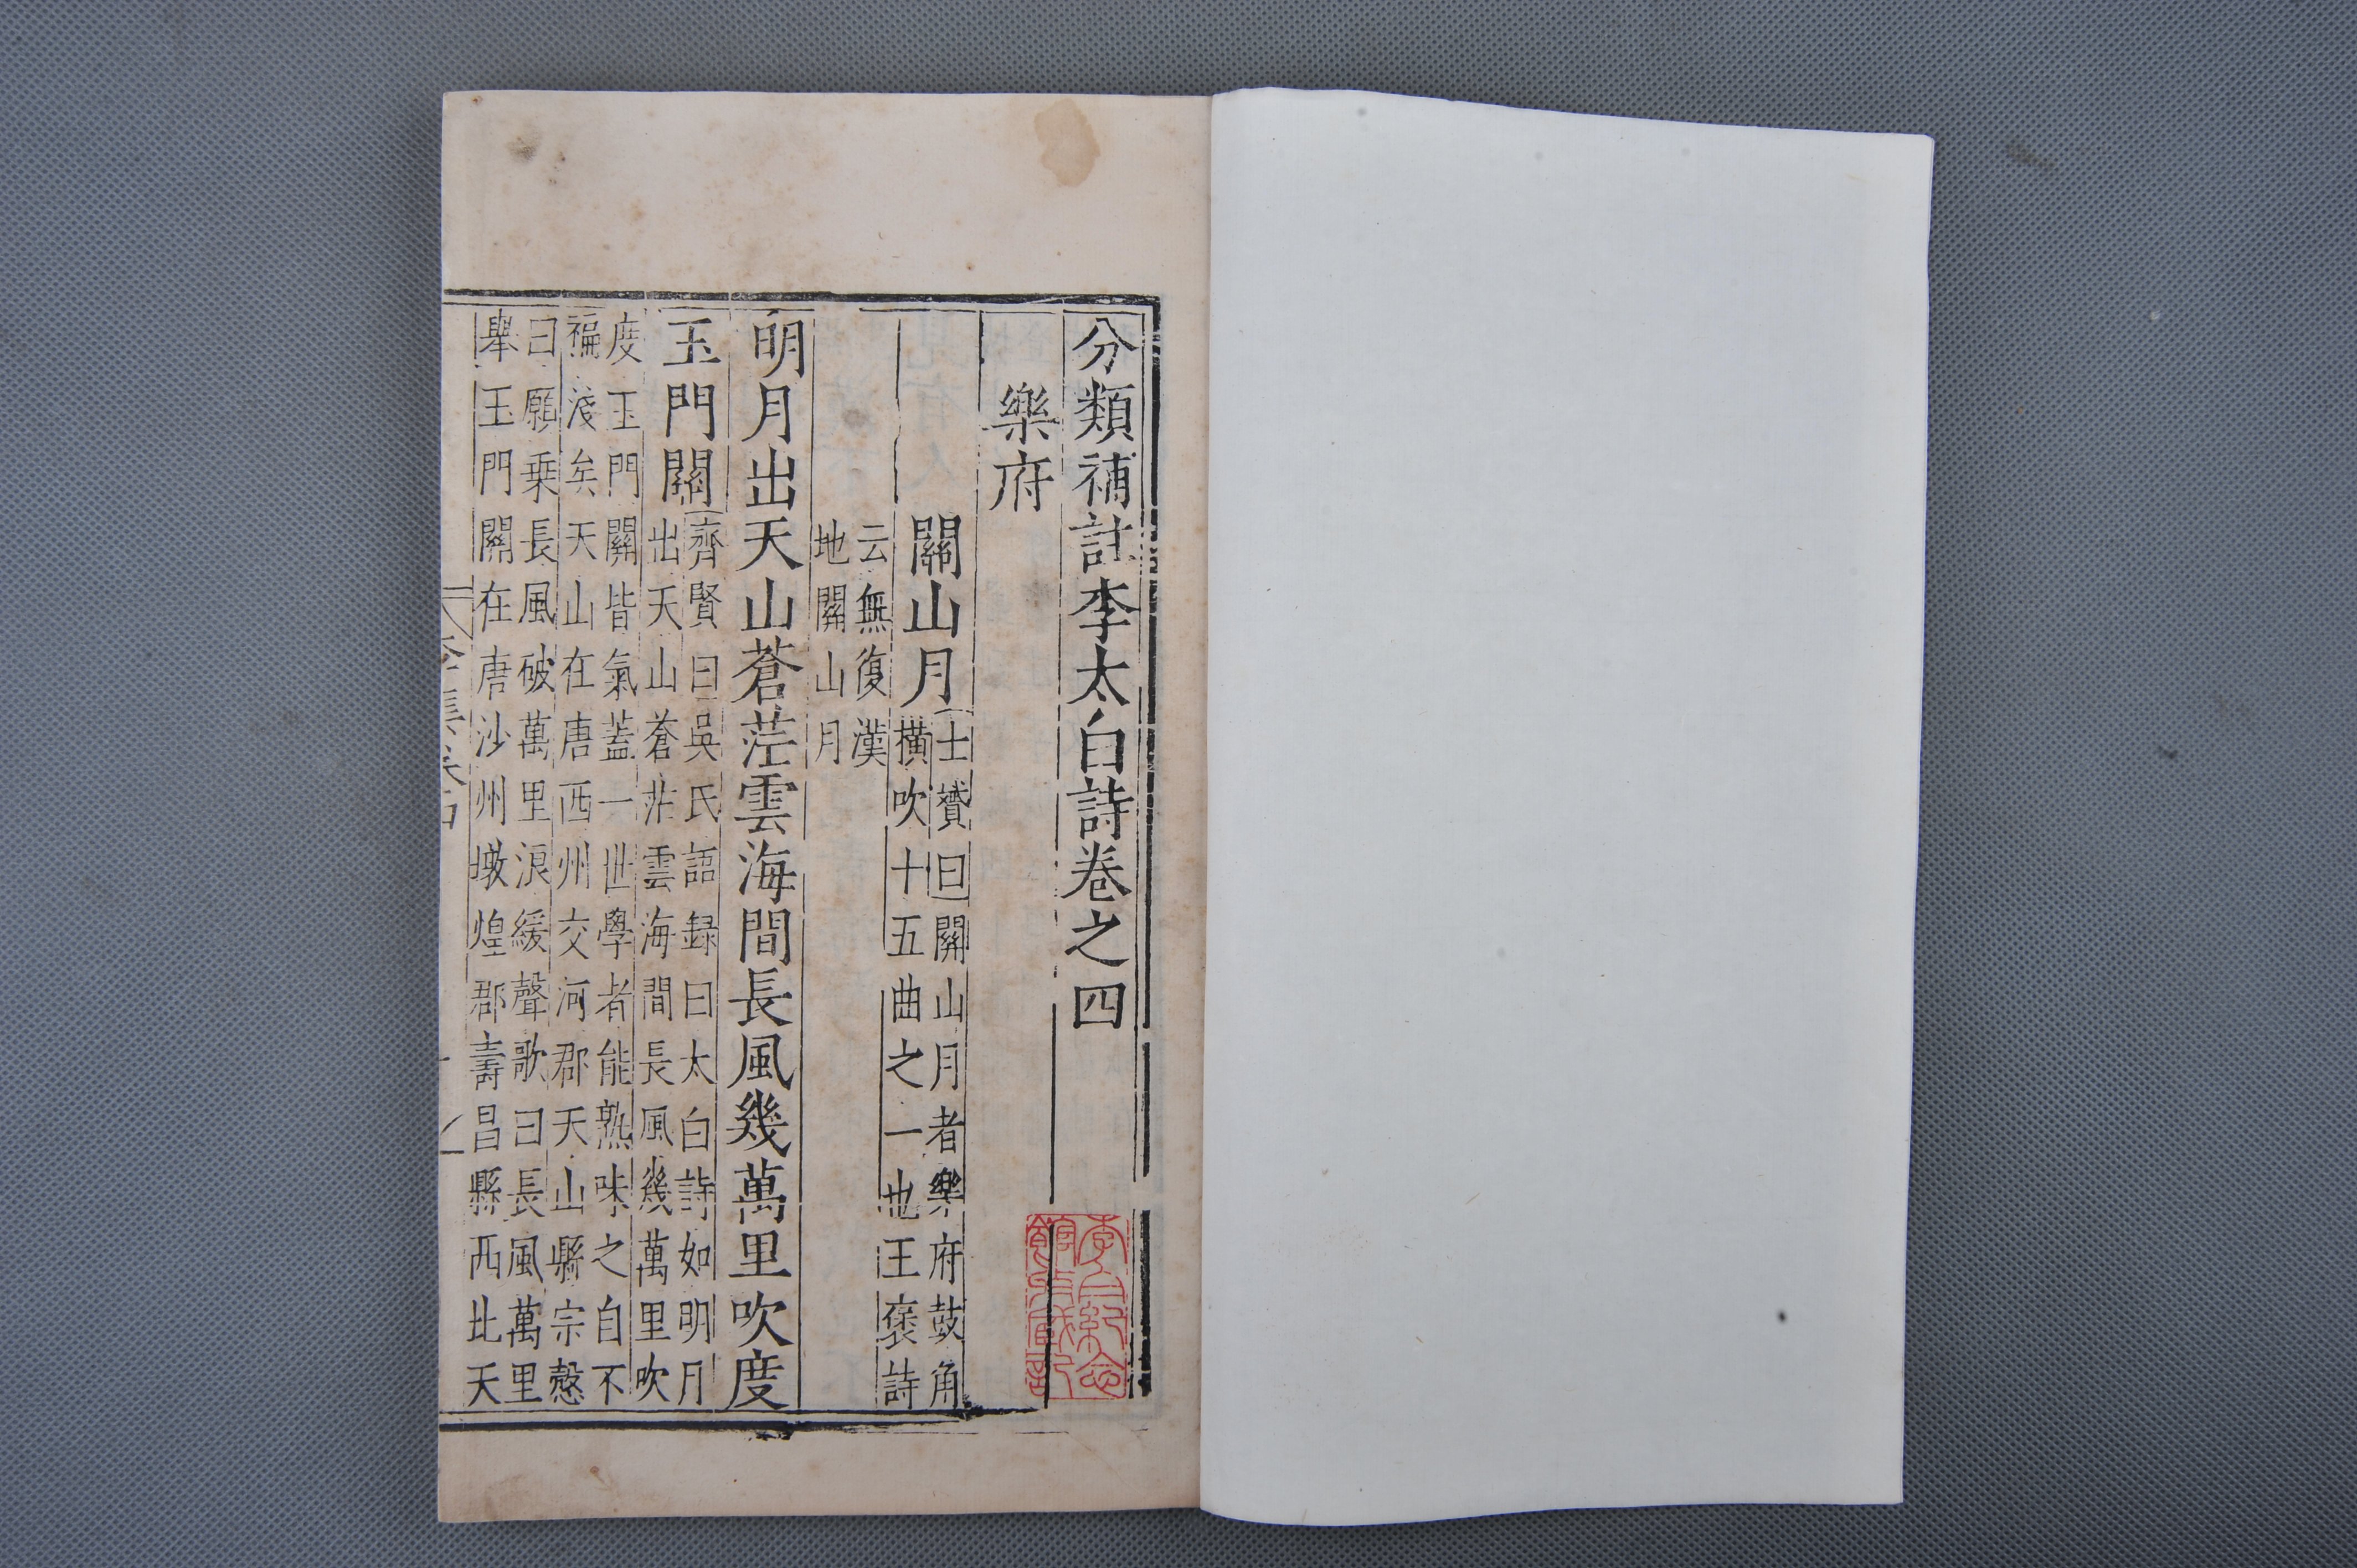 分類補註李太白詩卷之四
樂府
關山月
士贇曰關山月者樂府鼓角
橫吹十五曲之一也王褒詩
云無復漢
地關山月
明月出天山蒼茫雲海間長風幾萬里吹度
玉門關
齊賢曰吳氏語録曰太白詩如明月
出天山蒼茫雲海間長風幾萬里吹
度玉門關皆氣蓋一世學者能熟味之自不
褊淺矣天山在唐西州交河郡天山縣宗愨
曰願乗長風破萬里浪緩聲歌曰長風萬里
舉玉門關在唐沙州墩煌郡壽昌縣西北天
李白紀念
館收藏印